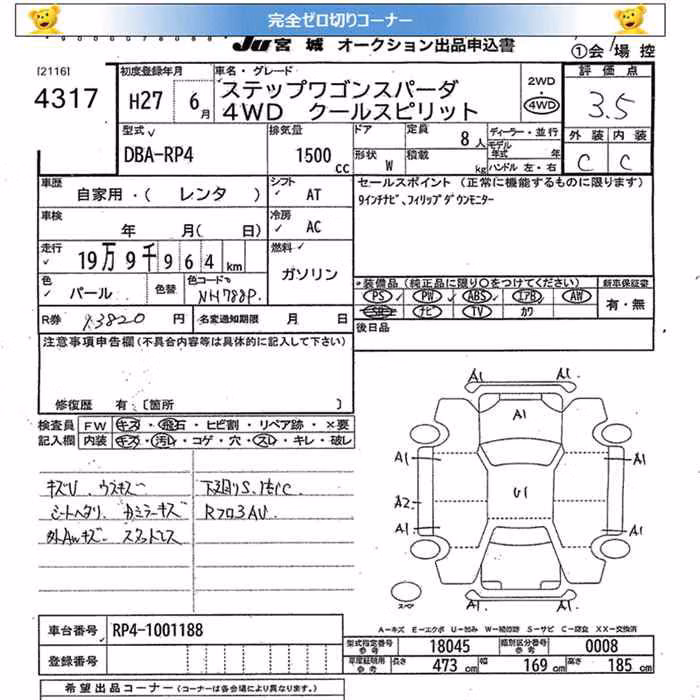 完全ゼロ切りコーナー
Ju 宮城 オークション出品申込書
① 会 / 場 控
[2116]
4317
初度登録年月
H27 6月
車名・グレード
ステップワゴンスパーダ
4WD クールスピリット
2WD
4WD
評価点
3.5
外装 内装
C C
型式
DBA-RP4
排気量
1500 cc
ドア
定員
8人
形状 W
積載 kg
ディーラー・並行
モデル年式 年
ハンドル 左・右
車歴
自家用・( レンタ )
シフト
AT
車検
年 月( 日)
冷房
AC
走行
19万9千964 km
燃料
ガソリン
色
パール
色替
色コード
NH788P
R券
13820 円
名変通知期限 月 日
セールスポイント (正常に機能するものに限ります)
9インチナビ、フィリップダウンモニター
*装備品 (純正品に限り○をつけてください)
PS PW ABS エアB AW
SR ナビ TV カワ
新車保証書
有・無
後日品
注意事項申告欄(不具合内容等は具体的に記入して下さい)
修復歴 有〔箇所 〕
検査員記入欄
FW キズ・飛石・ヒビ割・リペア跡・×要
内装 キズ・汚レ・コゲ・穴・スレ・キレ・破レ
キズU ウスキズ 下廻りS.古C
シートヘタリ カミラーキズ Rフロ3AU
外AWキズ スタッドレス
A1 A1
A1
A1 A1
A2 U1
A1 A1
A1 A1
スペア
A-キズ E-エクボ U-凹み W-補修跡 S-サビ C-腐食 XX-交換済
車台番号
RP4-1001188
登録番号
型式指定番号 参考
18045
類別区分番号 参考
0008
車庫証明用 参考
長さ 473 cm
幅 169 cm
高さ 185 cm
希望出品コーナー (コーナーは各会場により異なります。)